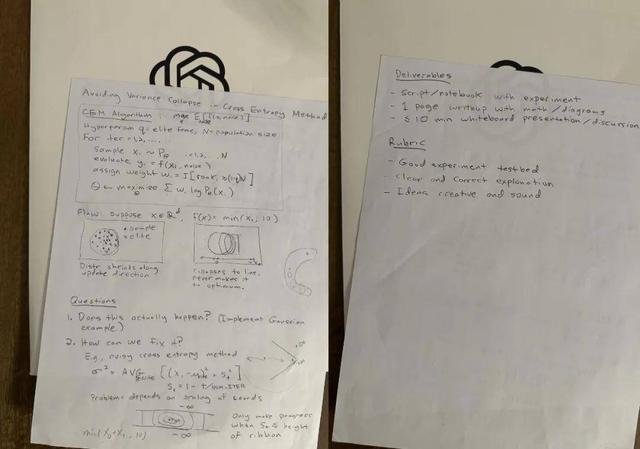 Avoiding Variance Collapse in Cross Entropy Method
CEM Algorithm: max E[f(x, noise)]
Hyperparam q = elite frac, N = population size
For iter = 1,2,...
Sample xᵢ ~ P_θ i=1,2,..N
evaluate yᵢ = f(xᵢ, noise)
assign weight wᵢ = I[rank
θ ← maximize Σ wᵢ log P_θ(xᵢ)
Flaw: suppose x ∈ ℝᵈ, f(x) = min(x₁, 10)
• sample
x elite
Distr shrinks along
update direction.
collapses to line,
never makes it
to optimum.
Questions
1. Does this actually happen? (Implement Gaussian
example.)
2. How can we fix it?
E.g., noisy cross entropy method
σ² = AVG
Sₜ = 1 - t/num.ITER
Problem: depends on scaling of coords
-∞
-∞
Only make progress
when
height
of ribbon
Deliverables
- script/notebook with experiment
- 1 page writeup with math/diagrams
- ≤ 10 min whiteboard presentation/discussion
Rubric
- Good experiment testbed
- Clear and correct explanation
- Ideas creative and sound